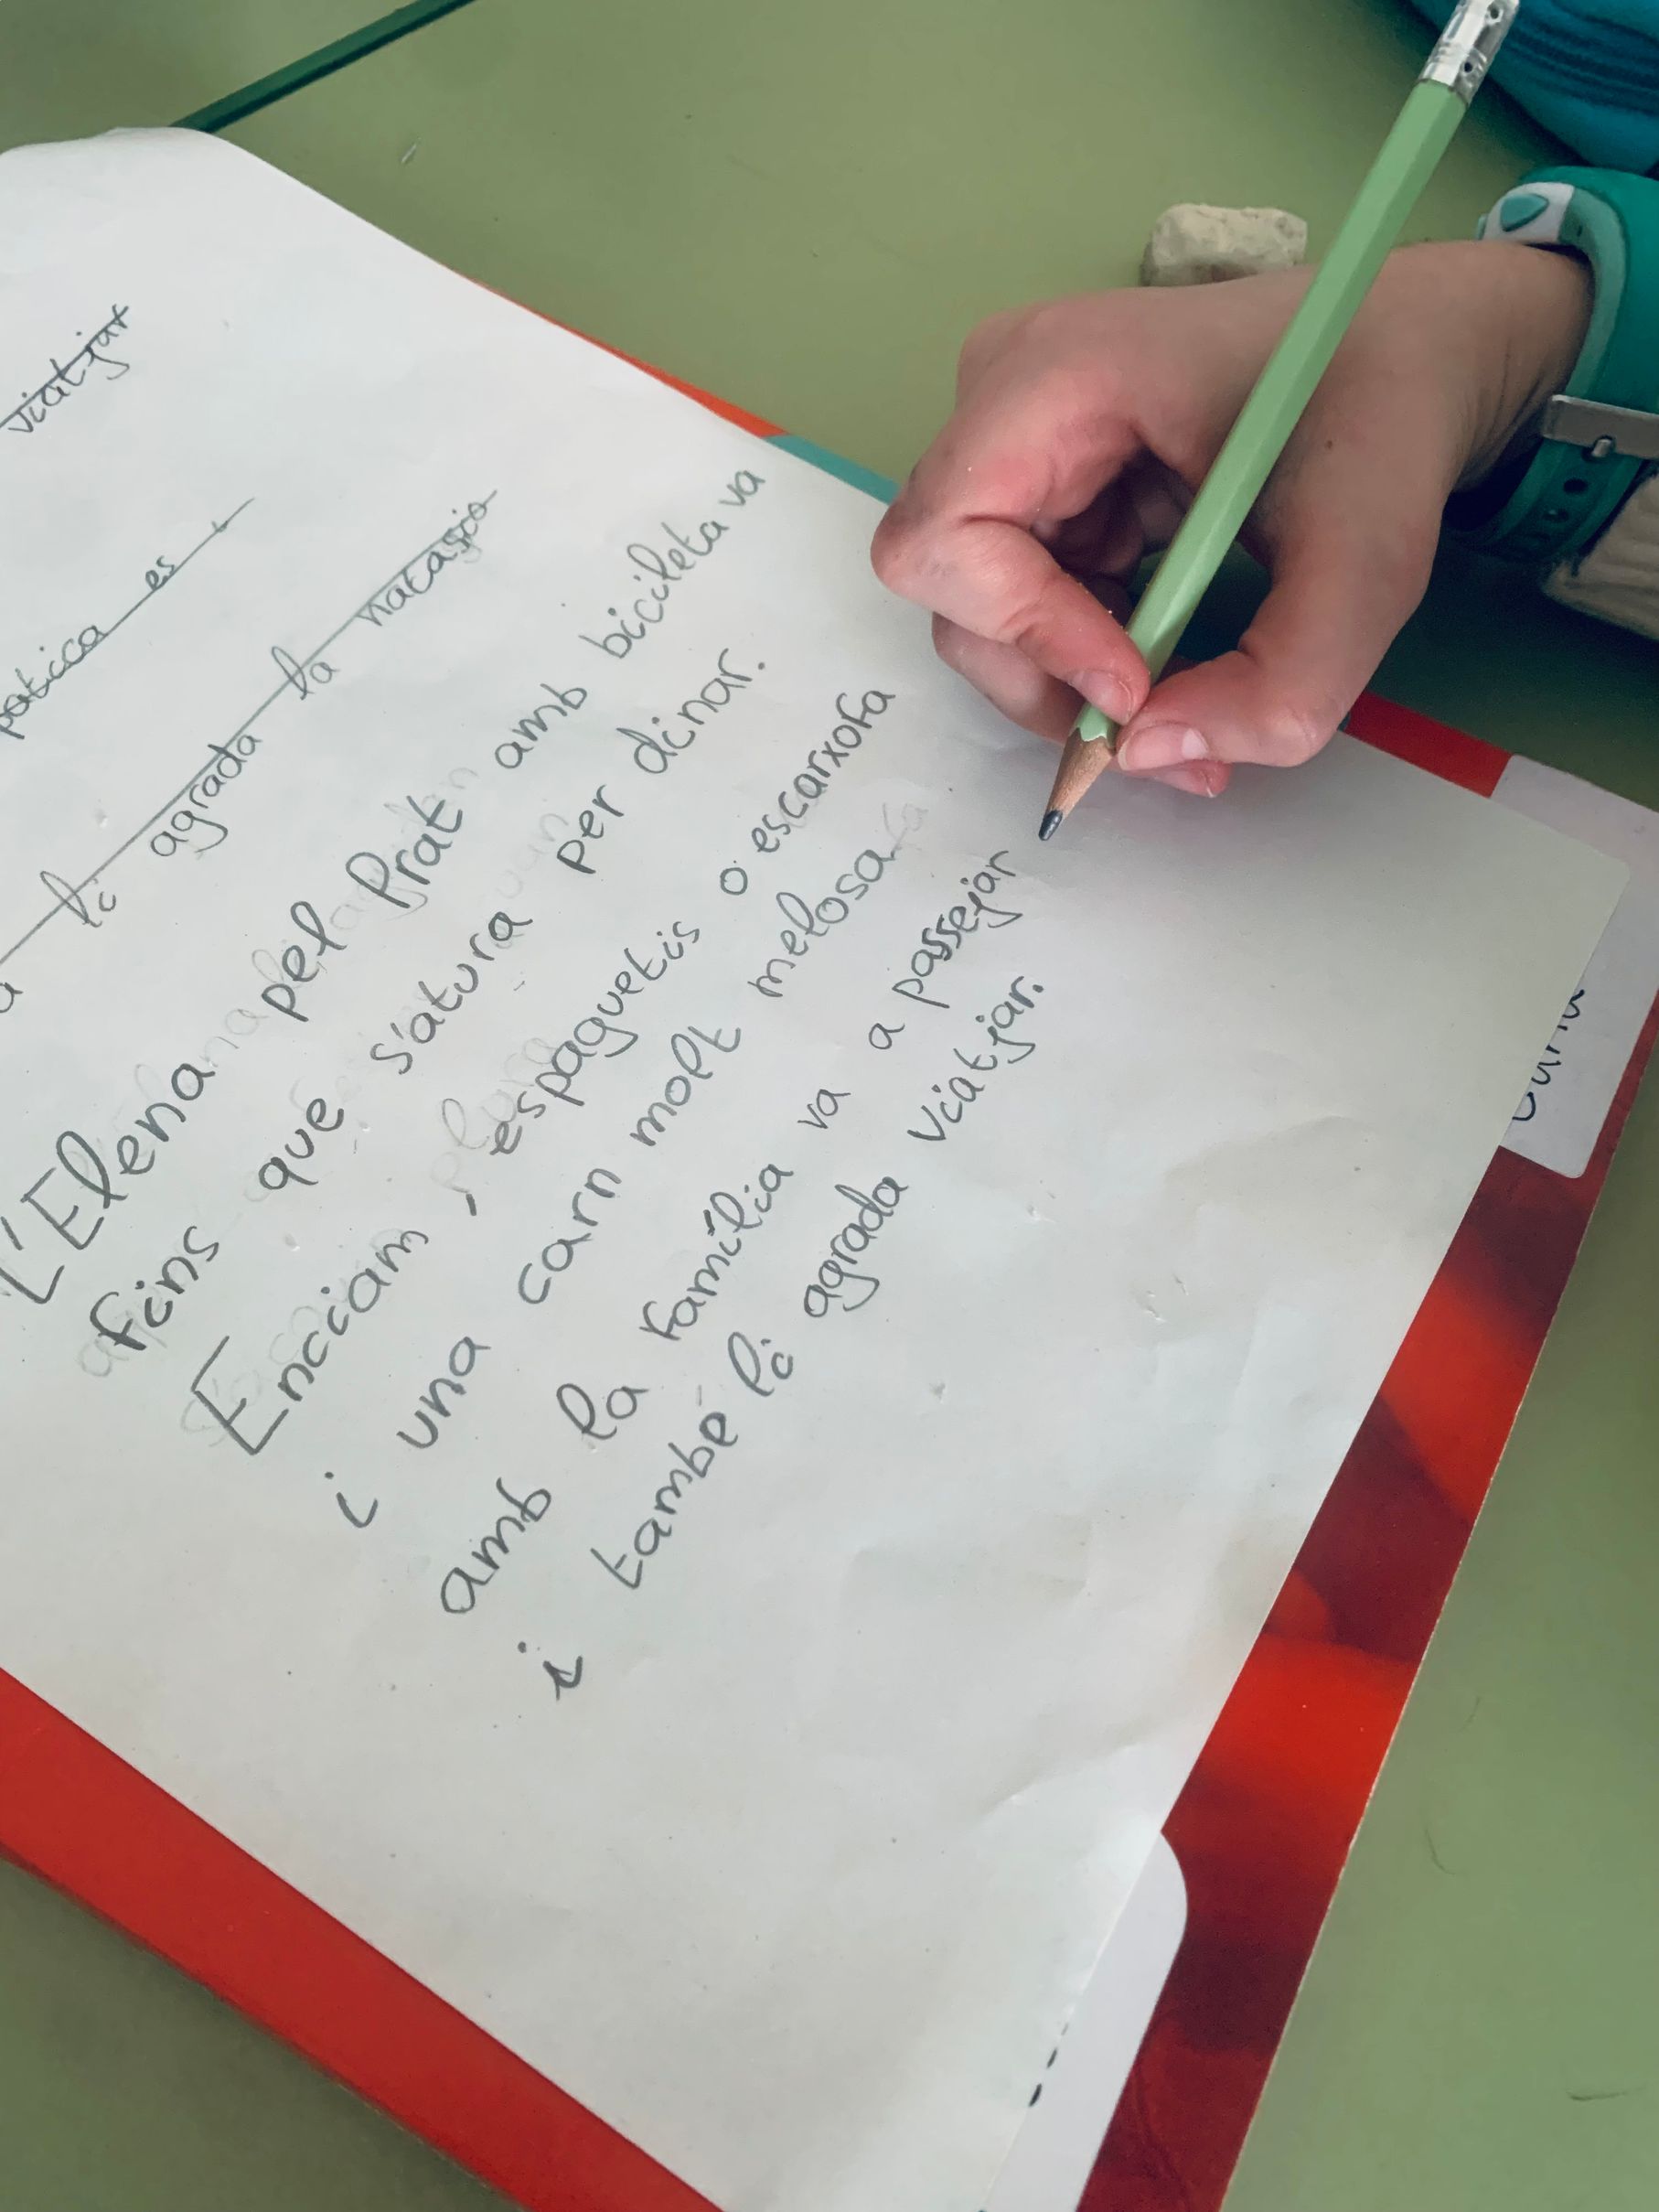 viatjar
es
li agrada la natasió
L'Elena pel Prat amb bicileta va
fins que s'atura per dinar.
Enciam, espaguetis o escarxofa
i una carn molt melosa
amb la família va a passejar
i també li agrada viatjar.